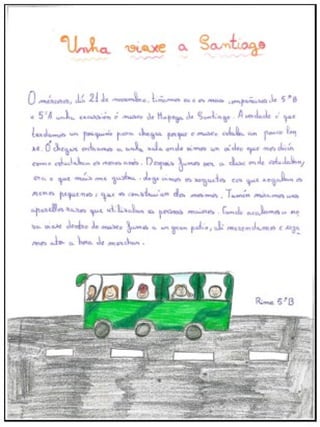 Unha viaxe a Santiago
O mércores, día 21 de novembro, fixemos eu e os meus compañeiros de 5ºB
e 5ºA unha excursión ó museo de Mupega de Santiago. A verdade é que
tardamos un pouquiño para chegar porque o museo estaba un pouco lon
xe. Ó chegar entramos a unha aula onde vimos un vídeo que nos dicía
como estudaban os nosos avós. Despois fumos por a clase onde estudaban,
era o que máis me gustou. vimos os xoguetes cos que xogaban os
nenos pequenos; que os construían eles mesmos. Tamén miramos uns
aparellos raros que utilizaban as persoas maiores. Cando acabamos
dentro do museo fumos a un gran patio, alí merendamos e xoga
mos ata a hora de marchar.
Rima 5ºB